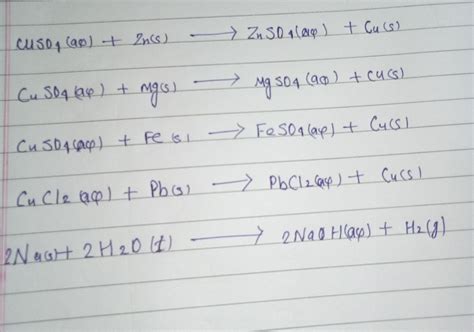 CuSO4(aq) + Zn(s) → ZnSO4(aq) + Cu(s)
CuSO4(aq) + Mg(s) → MgSO4(aq) + Cu(s)
CuSO4(aq) + Fe(s) → FeSO4(aq) + Cu(s)
CuCl2(aq) + Pb(s) → PbCl2(aq) + Cu(s)
2Na(s) + 2H2O(l) → 2NaOH(aq) + H2(g)